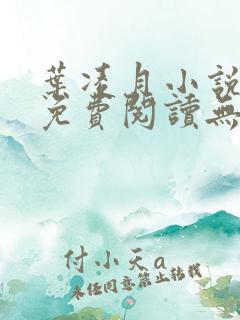 葉凌月小說
免費閱讀無
付小天a
未經同意禁止轉載